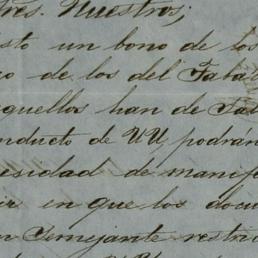 tres. Nuestros;
sto un bono de los
o de los del Tabal
quellos han de Tal
onducto de UU, podrán
esidad de manife
ir en que los docu
n Semejante restri